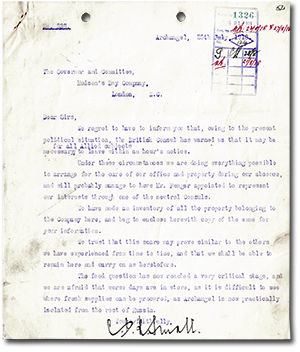 1326
Archangel,
The Governor and Committee,
Hudson's Bay Company,
London, E.C.
Dear Sirs,
We regret to have to inform you that, owing to the present
political situation, the British Consul has warned us that it may be
for all Allied subjects
necessary to leave within an hour's notice.
Under these circumstances we are doing everything possible
to arrange for the care of our office and property during our absence,
and will probably manage to have Mr. appointed to represent
our interests through one of the neutral Consuls.
We have made an inventory of all the property belonging to
the Company here, and beg to enclose herewith copy of the same for
your information.
We trust that this scare may prove similar to the others
we have experienced from time to time, and that we shall be able to
remain here and carry on as heretofore.
The food question has now reached a very critical stage, and
we are afraid that worse days are in store, as it is difficult to see
where fresh supplies can be procured, as Archangel is now practically
isolated from the rest of Russia.